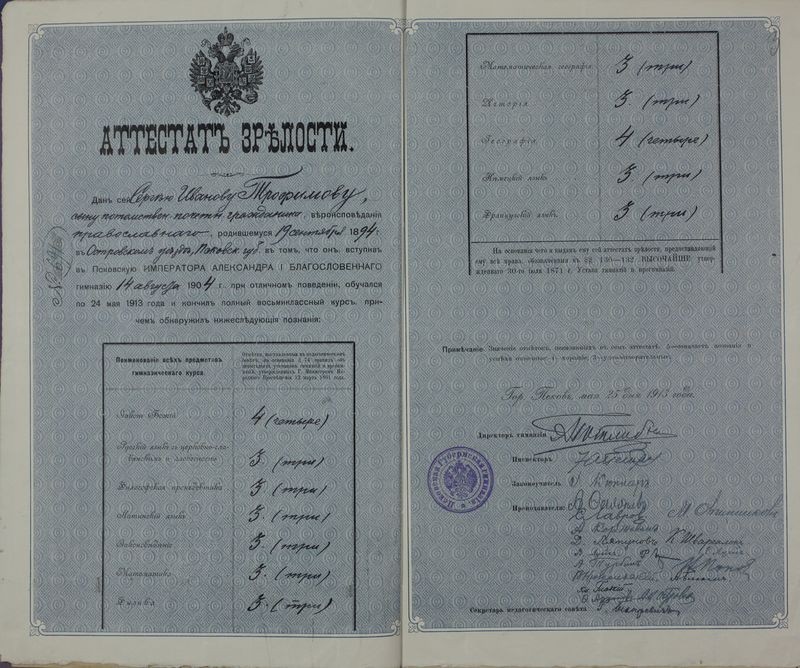 АТТЕСТАТЪ ЗРѢЛОСТИ.
Данъ сей Сергѣю Иванову Трофимову,
сыну потомствен. почетн. гражданина, вѣроисповѣданія
православнаго, родившемуся 19 сентября 1894 г.
въ Островскомъ уѣздѣ, Псковск. губ. въ томъ, что онъ, вступивъ
въ Псковскую ИМПЕРАТОРА АЛЕКСАНДРА I БЛАГОСЛОВЕННАГО
гимназію 14 августа 1904 г., при отличномъ поведеніи, обучался
по 24 мая 1913 года и кончилъ полный восьмиклассный курсъ, при-
чемъ обнаружилъ нижеслѣдующія познанія:
Наименованіе всѣхъ предметовъ
гимназическаго курса.
Законъ Божій 4 (четыре)
Русскій языкъ съ церковно-сла-
вянскимъ и словесность 3. (три)
Философская пропедевтика 3. (три)
Латинскій языкъ 3. (три)
Законовѣдѣніе 3. (три)
Математика 3. (три)
Физика 3. (три)
Математическая географія 3 (три)
Исторія 3 (три)
Географія 4 (четыре)
Нѣмецкій языкъ 3 (три)
Французскій языкъ 3 (три)
На основаніи чего и выданъ ему сей аттестатъ зрѣлости, предоставляющій
ему всѣ права, обозначенныя въ §§ 130—132 ВЫСОЧАЙШЕ утвер-
жденнаго 30-го іюля 1871 г. Устава гимназій и прогимназій.
Примѣчаніе. Значеніе отмѣтокъ, поименованныхъ въ семъ аттестатѣ: 5—означаетъ познанія и
успѣхи отличные, 4—хорошіе, 3—удовлетворительные.
Гор. Псковъ, мая 25 дня 1913 года.
Директоръ гимназіи
Инспекторъ
Законоучитель
Преподаватели:
С. Лавровъ
Секретарь педагогическаго совѣта
Псковская Губернская гимназія